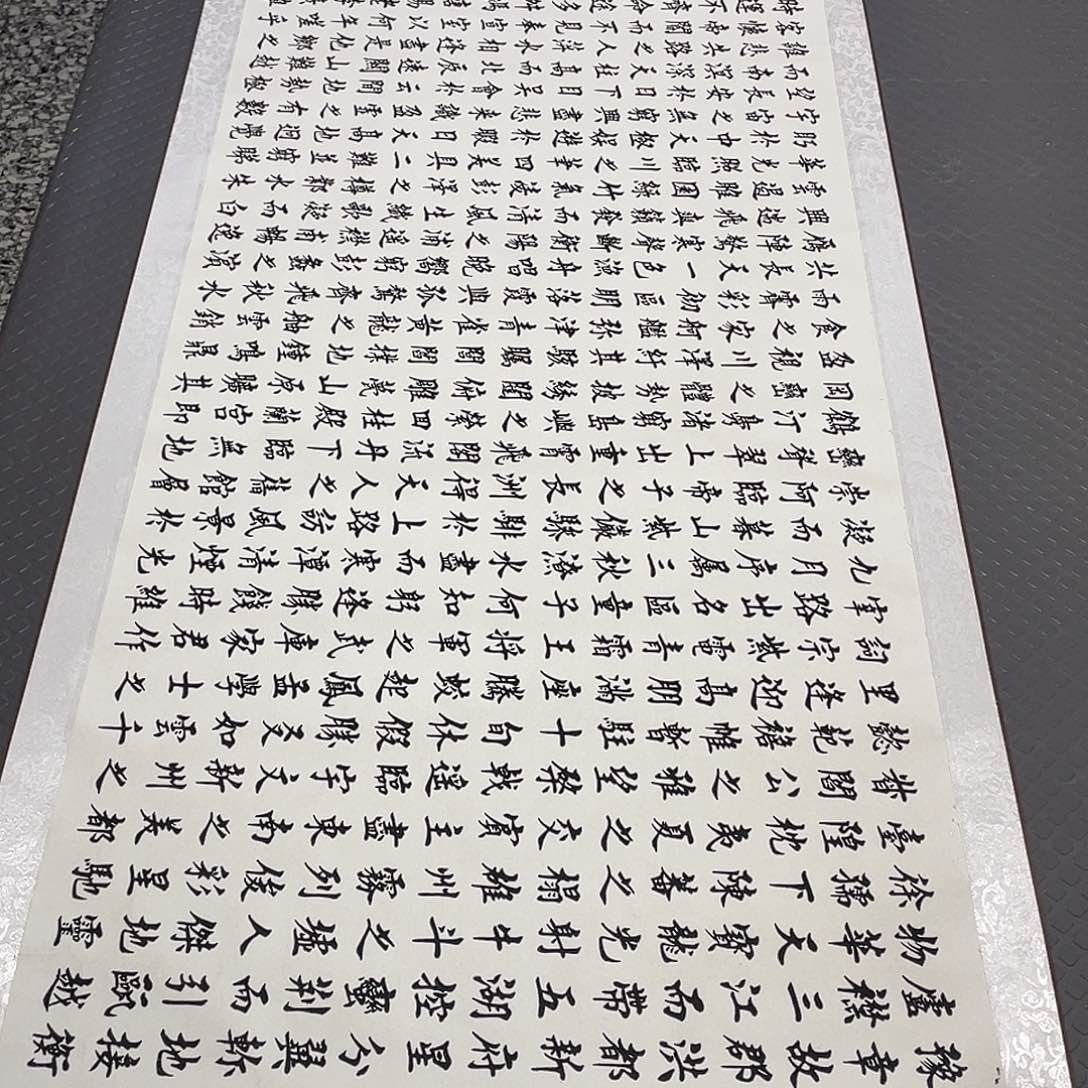 豫章故郡洪都新府星分翼軫地接衡
廬襟三江而帶五湖控蠻荊而引甌越
物華天寶龍光射牛斗之墟人傑地靈
徐孺下陳蕃之榻雄州霧列俊彩星馳
臺隍枕夷夏之交賓主盡東南之美都
督閻公之雅望棨戟遙臨宇文新州之
懿範襜帷暫駐十旬休假勝友如雲千
里逢迎高朋滿座騰蛟起鳳孟學士之
詞宗紫電青霜王將軍之武庫家君作
宰路出名區童子何知躬逢勝餞時維
九月序屬三秋潦水盡而寒潭清煙光
凝而暮山紫儼驂騑於上路訪風景於
崇阿臨帝子之長洲得天人之舊館層
巒聳翠上出重霄飛閣流丹下臨無地
鶴汀鳧渚窮島嶼之縈回桂殿蘭宮即
岡巒之體勢披繡闥俯雕甍山原曠其
盈視川澤紆其駭矚閭閻撲地鐘鳴鼎
食之家舸艦弥津青雀黃龍之舳雲銷
雨霽彩徹區明落霞與孤鶩齊飛秋水
共長天一色漁舟唱晚響窮彭蠡之濱
雁陣驚寒聲斷衡陽之浦遙襟甫暢逸
興遄飛爽籟發而清風生纖歌凝而白
雲遏睢園綠竹氣凌彭澤之樽鄴水朱
華光照臨川之筆四美具二難並窮睇
眄於中天極娛遊於暇日天高地迥覺
宇宙之無窮興盡悲來識盈虛之有數
望長安於日下目吳會於雲間地勢極
而南溟深天柱高而北辰遠關山難越
誰悲失路之人萍水相逢盡是他鄉之
客懷帝閽而不見奉宣室以何年嗟乎